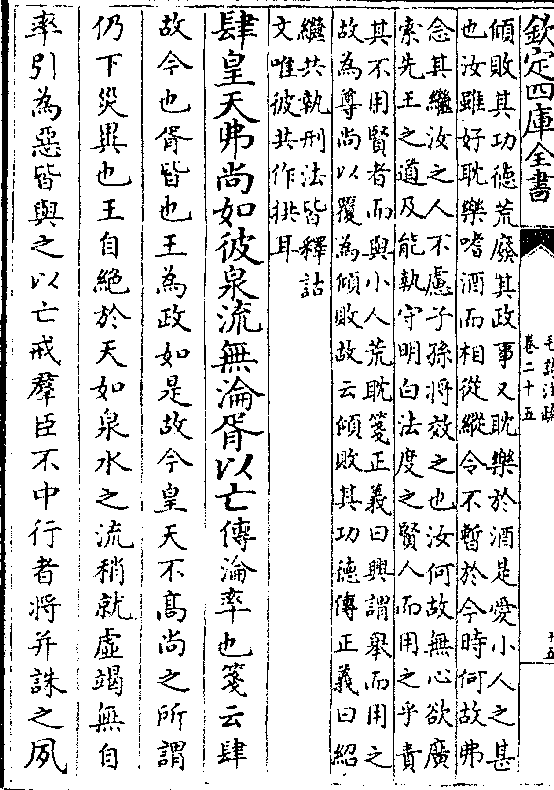 欽定四庫全書
毛詩注疏
卷二十五
十五
傾敗其功德荒廢其政事又耽樂於酒是愛小人之甚
也汝雖好耽樂嗜酒而相從縱令不暫於今時何故弗
念其繼汝之人不慮子孫將效之也汝何故無心欲廣
索先王之道及能執守明白法度之賢人而用之乎責
其不用賢者而與小人荒耽箋正義曰興謂舉而用之
故為尊尚以覆為傾敗故云傾敗其功德傳正義曰紹
繼共執刑法皆釋詁
文唯彼共作拱耳
肆皇天弗尚如彼泉流無淪胥以亡傳淪率也箋云肆
故今也胥皆也王為政如是故今皇天不高尚之所謂
仍下災異也王自絶於天如泉水之流稍就虛竭無自
率引為惡皆與之以亡戒羣臣不中行者將并誅之夙